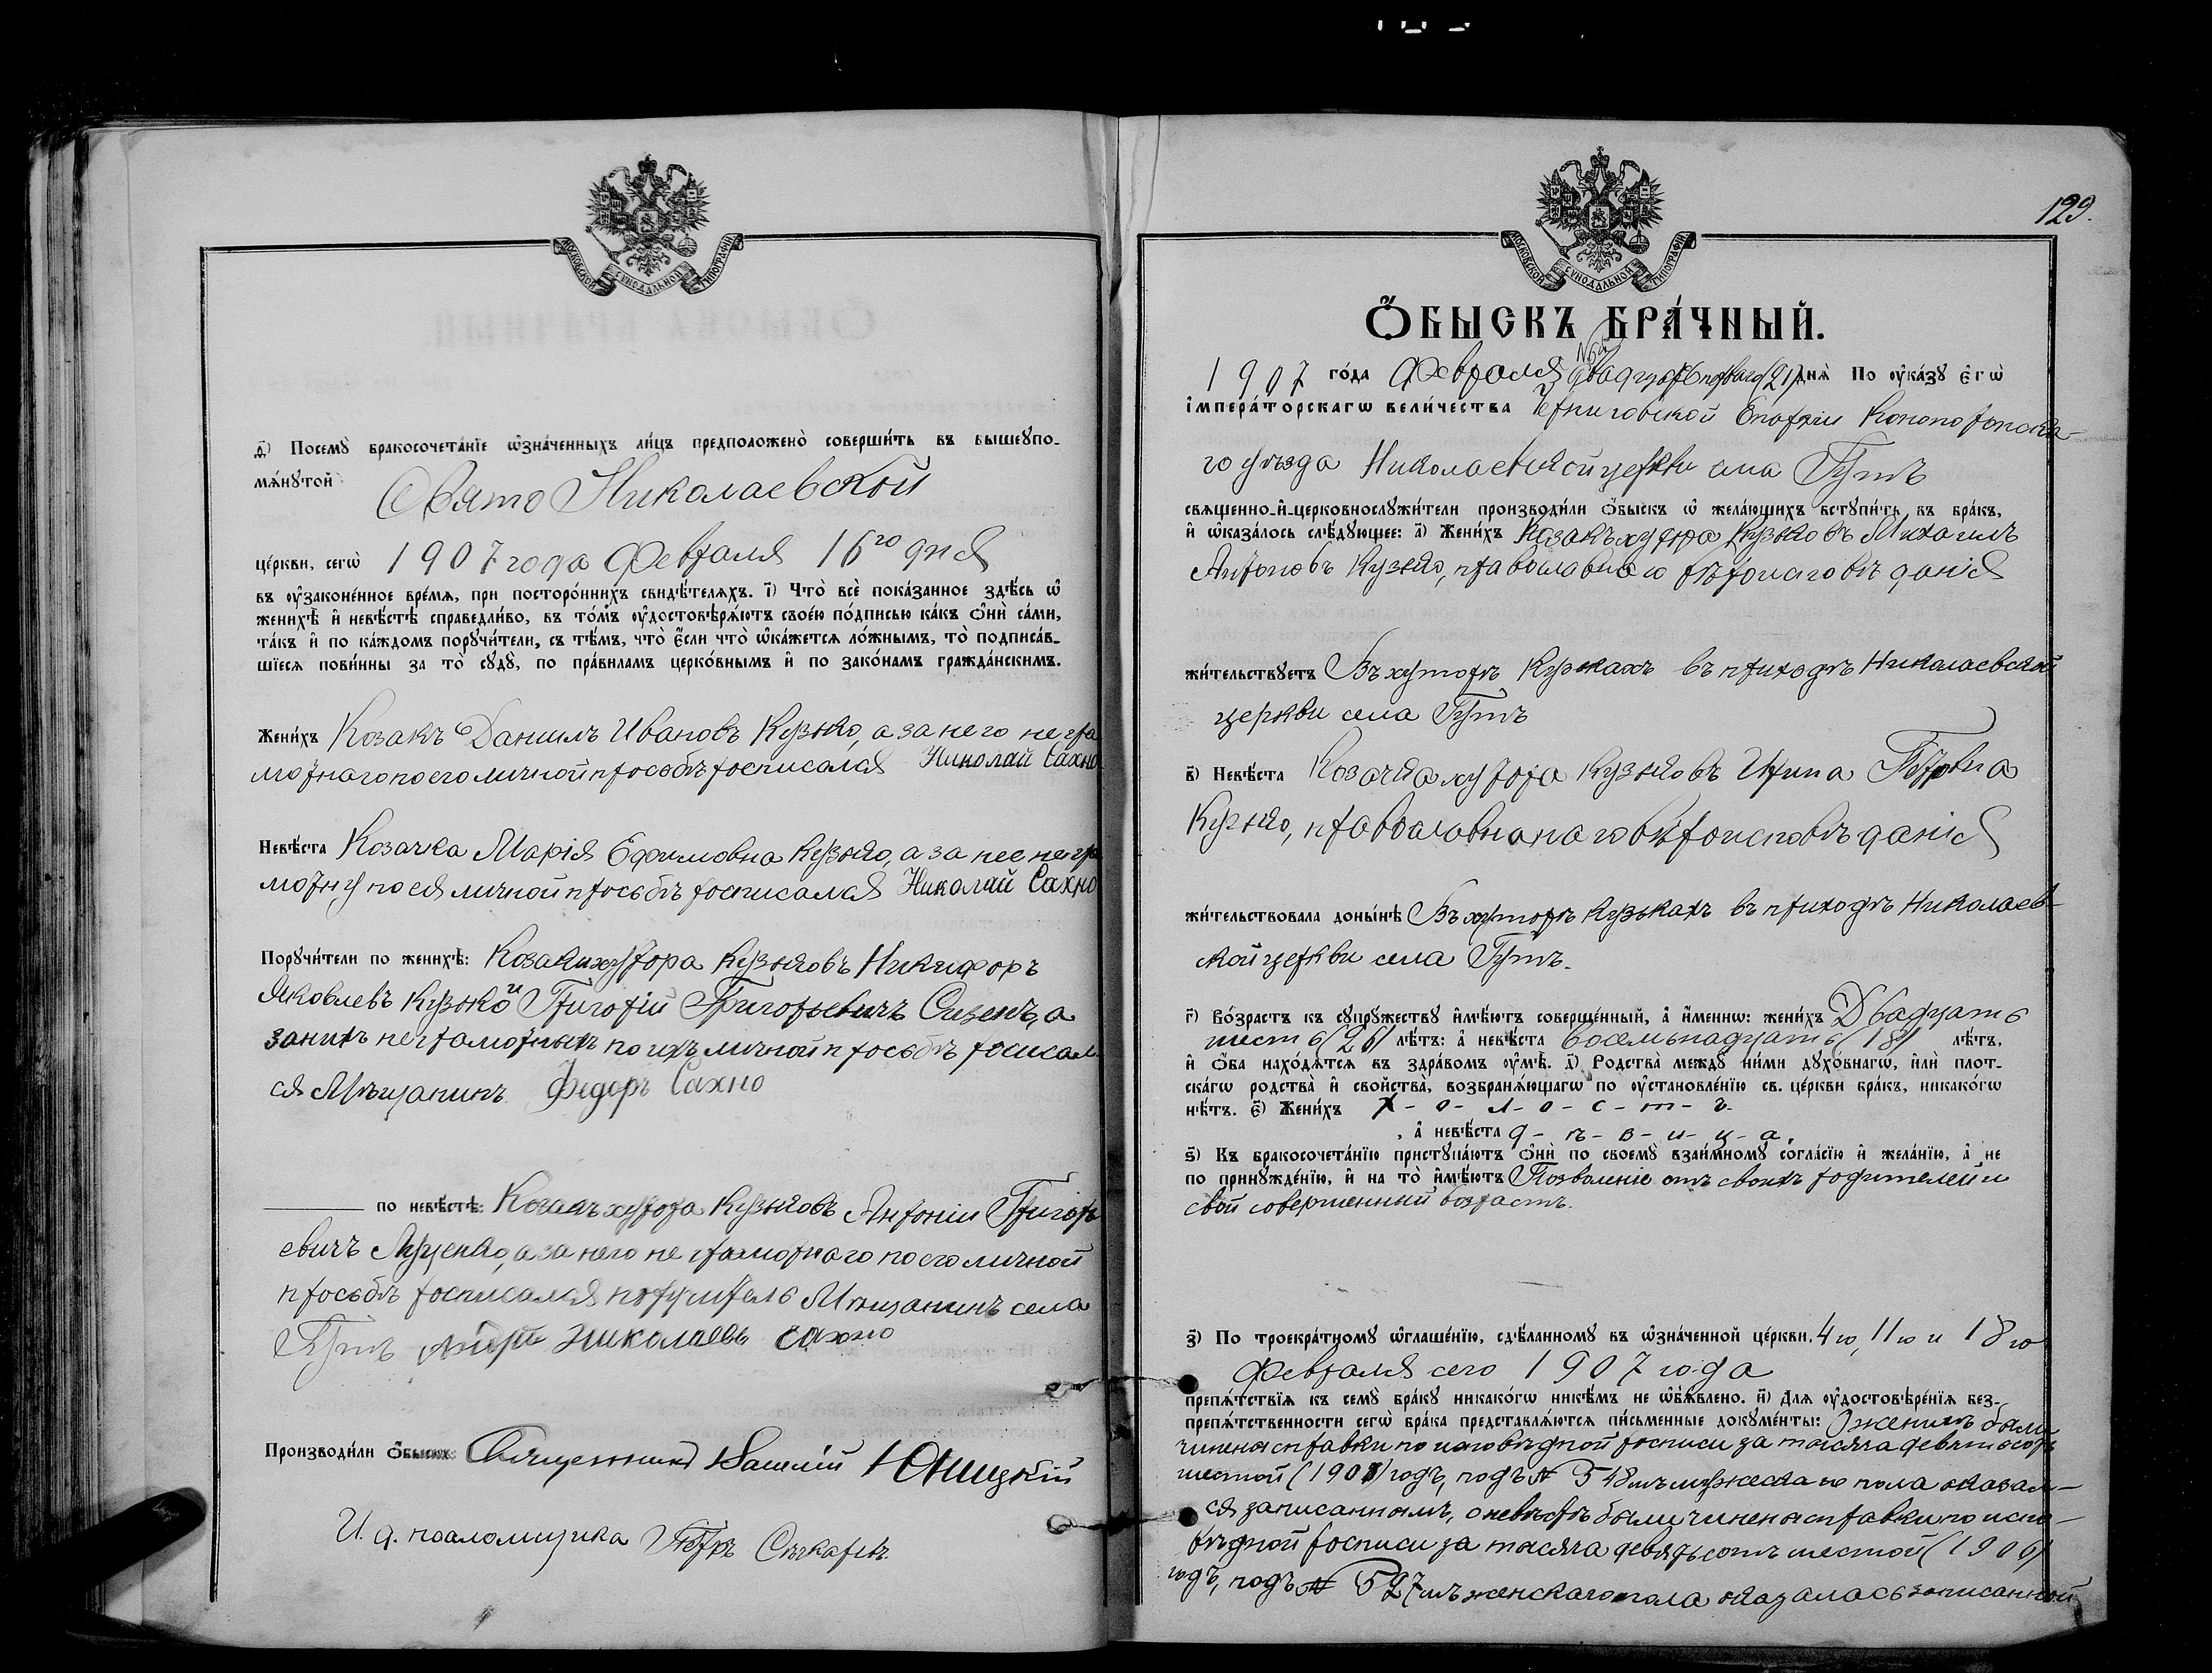 МОСКОВСКОЙ СѴНОДАЛЬНОЙ ТИПОГРАФІИ
д҃) Посемꙋ̀ бракосочета́нїе ѡ҆зна́ченныхъ ли́цъ предположено̀ соверши́ть въ вышеꙋпо-
мѧ́нꙋтой Свято Николаевской
це́ркви, сегѡ̀ 1907 года Февраля 16го дня
въ ᲂу҆зако́ненное вре́мѧ, при посторо́ннихъ свидѣ́телѧхъ. і҃) Что̀ всѐ пока́занное здѣ́сь ѡ҆
женихѣ̀ и҆ невѣ́стѣ справедли́во, въ то́мъ ᲂу҆достовѣрѧ́ютъ свое́ю по́дписью ка́къ ѻ҆нѝ са́ми,
та́къ и҆ по ка́ждомъ порꙋчи́тели, съ тѣ́мъ, что̀ є҆́сли что̀ ѡ҆ка́жетсѧ ло́жнымъ, то̀ подписа́в-
шїесѧ пови́нны за то̀ сꙋдꙋ̀, по пра́виламъ церко́внымъ и҆ по зако́намъ гражда́нскимъ.
Жени́хъ Козакъ Даниилъ Ивановъ Кузько, а за него негра
мотнаго по его личной просьбѣ росписался Николай Сахно
Невѣ́ста Козачка Марія Ефимовна Кузько, а за нее негра
мотну по ея личной просьбѣ росписался Николай Сахно
Порꙋчи́тели по женихѣ̀: Козаки хутора Кузьковъ Никифоръ
Яковлевъ Кузько и Григорій Григорьевичъ Сизенъ, а
за нихъ неграмотныхъ по ихъ личной просьбѣ росписал
ся Мѣщанинъ Федоръ Сахно
по невѣ́стѣ: Козакъ хутора Кузьковъ Антоній Григорь
евичъ Луценко, а за него не грамотнаго по его личной
просьбѣ росписался поручитель Мѣщанинъ села
Гутъ Николаевъ Сахно
Производи́ли ѻ҆́быскъ: Священникъ Василій Юницкій
И. д. псаломщика Петръ
129.
МОСКОВСКОЙ СѴНОДАЛЬНОЙ ТИПОГРАФІИ
Ѻ҆́БЫСКЪ БРА́ЧНЫЙ.
1907 го́да Февраля двадцать перваго (21) днѧ̀ По ᲂу҆ка́зꙋ є҆гѡ̀
і҆мпера́торскагѡ вели́чества Черниговской Епархіи Конотопска-
го уѣзда Николаевской церкви села Гутъ
свѧщенно-и҆-церковнослꙋжи́тели производи́ли ѻ҆́быскъ ѡ҆ жела́ющихъ встꙋпи́ть въ бра́къ,
и҆ ѡ҆каза́лось слѣ́дꙋющее: а҃) Жени́хъ Козакъ хутора Кузьковъ Михаилъ
Антоновъ Кузько, православнаго вѣроисповѣданія
жи́тельствꙋетъ Въ хуторѣ Кузькахъ въ приходѣ Николаевской
церкви села Гутъ
в҃) Невѣ́ста Козачка хутора Кузьковъ Ирина Петровна
Кузько, православнаго вѣроисповѣданія
жи́тельствовала доны́нѣ Въ хуторѣ Кузькахъ въ приходѣ Николаев-
ской церкви села Гутъ.
г҃) Во́зрастъ къ сꙋпрꙋ́жествꙋ и҆мѣ́ютъ соверше́нный, а҆ и҆́меннѡ: жени́хъ Двадцать
шесть (26) лѣ́тъ: а҆ невѣ́ста восемьнадцать (18) лѣ́тъ,
и҆ ѻ҆́ба нахо́дѧтсѧ въ здра́вомъ ᲂу҆мѣ̀. д҃) Родства̀ междꙋ̀ ни́ми дꙋхо́внагѡ, и҆лѝ плот-
ска́гѡ родства̀ и҆ сво́йства̀, возбранѧ́ющагѡ по ᲂу҆становле́нїю св. це́ркви бра́къ, никако́гѡ
нѣ́тъ. є҃) Жени́хъ х-о-л-о-с-т-ъ-
, а҆ невѣ́ста д-ѣ-в-и-ц-а.
ѕ҃) Къ бракосочета́нїю пристꙋпа́ютъ ѻ҆нѝ по своемꙋ̀ взаи́мномꙋ согла́сїю и҆ жела́нїю, а҆ не
по принꙋжде́нїю, и҆ на то̀ и҆мѣ́ютъ Позволеніе отъ своихъ родителей и
свой совершенный возрастъ.
з҃) По троекра́тномꙋ ѡ҆глаше́нїю, сдѣ́ланномꙋ въ ѡ҆зна́ченной це́ркви, 4го, 11го и 18го
Февраля сего 1907 года
препѧ́тствїѧ къ семꙋ̀ бра́кꙋ никако́гѡ никѣ́мъ не ѡ҆б̾ѧ́влено. и҃) Длѧ ᲂу҆достовѣре́нїѧ без-
препѧ́тственности сегѡ̀ бра́ка представлѧ́ютсѧ пи́сьменные докꙋме́нты: О женихѣ были
чинены справки по исповѣдной росписи за тысяча девятьсотъ
шестой годъ, подъ № 548мъ мужескаго пола оказал-
ся записаннымъ, о невѣстѣ были чинены справки по испо-
вѣдной росписи за тысяча девятьсотъ шестой (1906)
годъ, подъ № 527мъ женскаго пола оказалась записанной